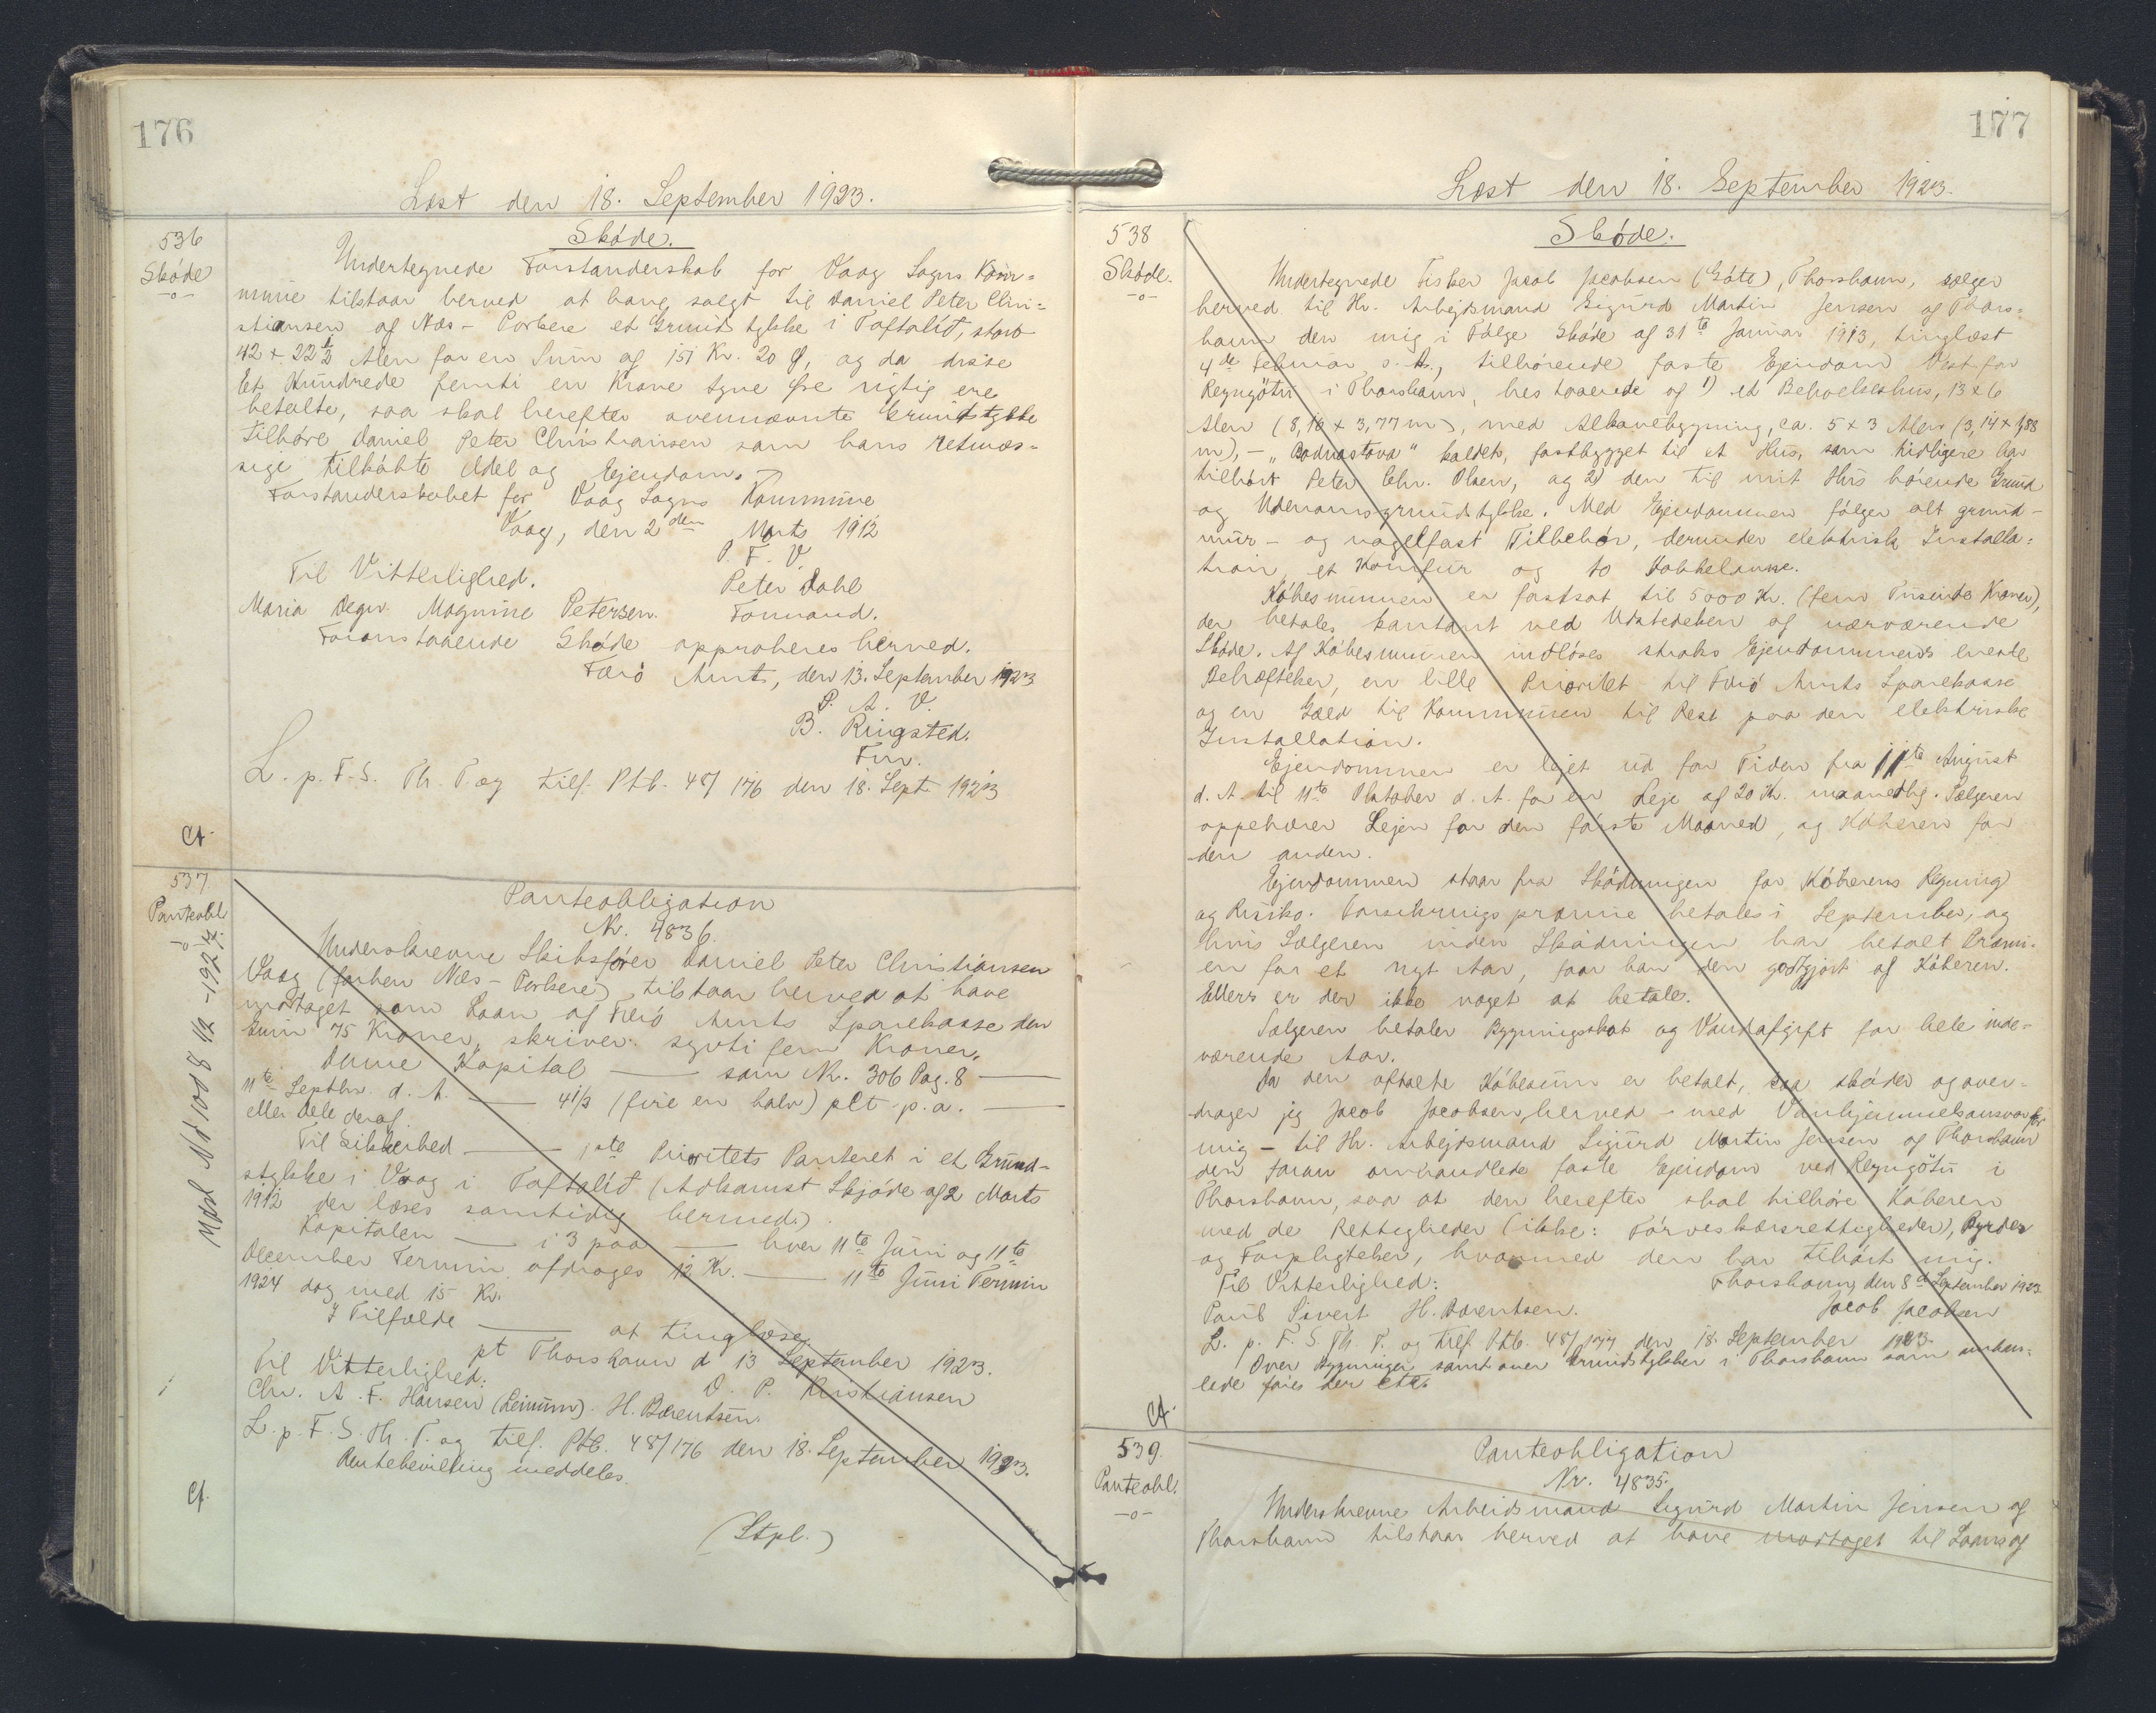 176
Læst den 18. September 1923.
536
Skóde
-o-
Skóde.
Undertegnede Forstanderskab for Vaag Sogns Kom=
mune tilstaar herved at have solgt til Daniel Peter Chri=
stiansen af Næs - Porkere et Grundstykke i Toftalíð, stort
42 x 22 1/2 Alen for en Sum af 151 Kr. 20 Ø, og da disse
Et Hundrede femti en Krone tyve Øre rigtig ere
betalte, saa skal herefter ovennævnte Grundstykke
tilhøre Daniel Peter Christiansen som hans retmæs=
sige tilkøbte Odel og Ejendom.
Forstanderskabet for Vaag Sogns Kommune
Vaag, den 2den Marts 1912
P. F. V.
Til Vitterlighed.
Peter Dahl
Maria Degn Magnine Petersen. Formand.
Foranstaaende Skøde approberes herved.
Færø Amt, den 13. September 1923
P. A. V.
B. Ringsted.
Fm.
L. p. F. S. Th. T. og tilf. Ptb. 48/176 den 18. Sept. 1923
Cf.
537.
Panteobl.
-o-
Udsl Nd 1008 1/2 -1927.
Panteobligation
Nr. 4836.
Underskrevne Skibsfører Daniel Peter Christiansen
Vaag (forhen Næs - Porkere) tilstaar herved at have
modtaget som Laan af Færø Amts Sparekasse den
Sum 75 Kroner, skriver: syvti fem Kroner.
Denne Kapital — som Nr. 306 Pag. 8 —
11te Septbr. d. A. — 4 1/2 (fire en halv) pCt. p. a. —
eller dele deraf.
Til Sikkerhed — 1ste Prioritets Panteret i et Grund-
stykke i Vaag i Toftalíð (Adkomst Skjøde af 2 Marts
1912 der læses samtidig hermed.)
Kapitalen — i 3 paa — hver 11te Juni og 11te
December Termin afdrages 12 Kr. — 11te Juni Termin
1924 dog med 15 Kr.
I Tilfælde — at tinglæse.
pt Thorshavn d 13 September 1923.
Til Vitterlighed:
D. P. Kristiansen
Chr. A. F. Hansen (Leinum). H. Barentsen.
L. p. F. S. Th. T. og tilf. Ptb. 48/176 den 18. September 1923.
meddeles.
Cf.
(Stpl.)
177
Læst den 18. September 1923.
538
Skøde.
-o-
Skøde.
Undertegnede Fisker Jacob Jacobsen (Gøte), Thorshavn, sælger
herved til Hr. Arbejdsmand Sigurd Martin Jensen af Thors=
havn den mig i Følge Skøde af 31te Januar 1913, tinglæst
4de Februar s. A., tilhørende faste Ejendom Vest for
Reyngøtu i Thorshavn, bestaaende af 1) et Beboelseshus, 13 x 6
Alen (8,16 x 3,77 m), med Altanebygning, ca. 5 x 3 Alen (3,14 x 1,88
m), - „Bodnastova" kaldet, fastbygget til et Hus, som tidligere har
tilhørt Peter Chr. Olsen, og 2) den til mit Hus hørende Grund
og Udenomsgrundstykke. Med Ejendommen følger alt grund-
mur- og nagelfast Tilbehør, derunder elektrisk Installa=
tion, et Komfur og to Kakkelovne.
Købesummen er fastsat til 5000 Kr. (fem Tusinde Kroner),
der betales kontant ved Udstedelsen af nærværende
Skøde. Af Købesummen indløses straks Ejendommens eneste
Behæftelser, en lille Prioritet til Færø Amts Sparekasse
og en Gæld til Kommunen til Rest paa den elektriske
Installation.
Ejendommen er lejet ud for Tiden fra 11te August
d. A. til 11te Oktober d. A. for en Leje af 20 Kr. maanedlig. Sælgeren
oppebærer Lejen for den første Maaned, og Køberen for
den anden.
Ejendommen staar fra Skødningen for Køberens Regning
og Risiko. Forsikringspræmie betales i September, og
hvis Sælgeren inden Skødningen har betalt Præmi-
en for et nyt Aar, faar han den godtgjort af Køberen.
Ellers er der ikke noget at betale.
Sælgeren betaler Bygningsskat og Vandafgift for hele inde-
værende Aar.
Da den aftalte Købesum er betalt, saa skøder og over-
drager jeg Jacob Jacobsen, herved - med Vanhjemmelsansvar for
mig - til Hr. Arbejdsmand Sigurd Martin Jensen af Thorshavn
den foran omhandlede faste Ejendom ved Reyngøtu i
Thorshavn, saa at den herefter skal tilhøre Køberen
med de Rettigheder (ikke: Tørveskærsrettigheder), Byrder
og Forpligtelser, hvormed den har tilhørt mig.
Til Vitterlighed:
Thorshavn, den 8de September 1923.
Poul Sivert H. Darentsen.
Jacob Jacobsen
L. p. F. S. Th. T. og tilf. Ptb. 48/177 den 18. September 1923.
Over Bygninger samt over Grundstykker i Thorshavn som omhan=
lede føres der etc.
Cf.
539.
Panteobl.
-o-
Panteobligation
Nr. 4835.
Underskrevne Arbeidsmand Sigurd Martin Jensen af
Thorshavn tilstaar herved at have modtaget til Laans af